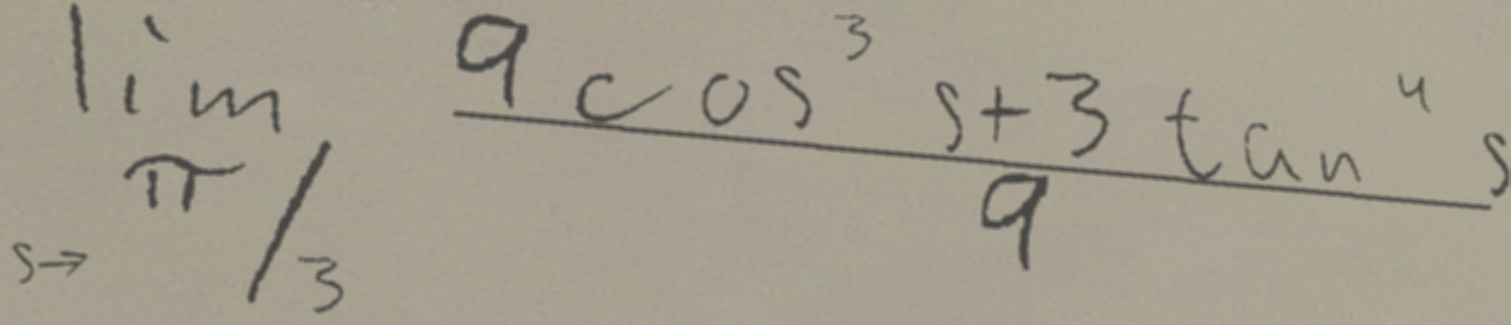 \lim_{s \to \pi/3} \frac{9 \cos^3 s + 3 \tan^4 s}{9}